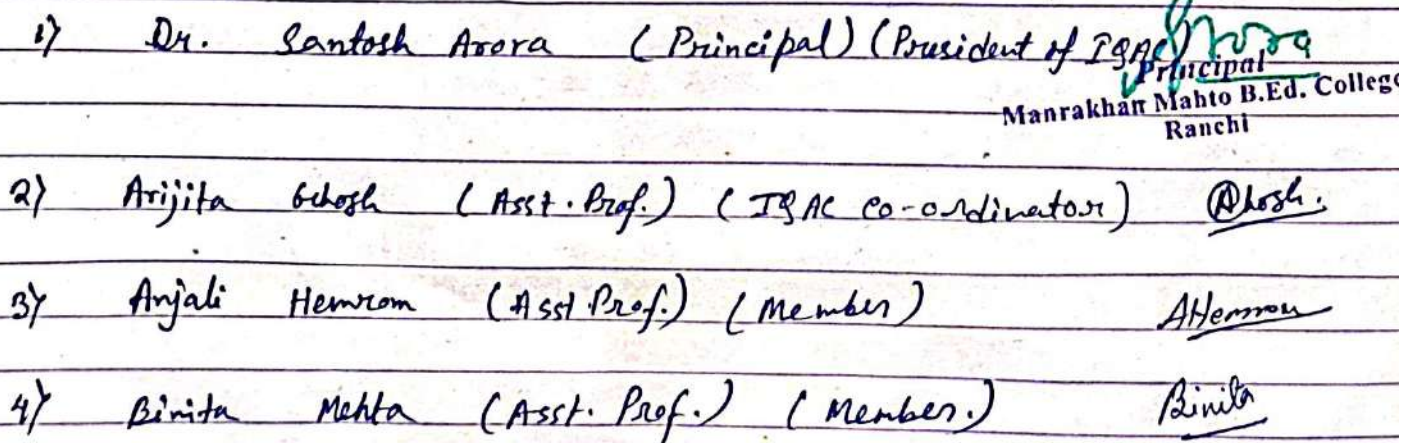 1) Dr. Santosh Arora (Principal) (President of IQAC) Arora
Principal
Manrakhan Mahto B.Ed. College
Ranchi
2) Arijita Ghosh (Asst. Prof.) (IQAC Co-ordinator) AGhosh.
3) Anjali Hemrom (Asst Prof.) (Member) AHemrom
4) Binita Mehta (Asst. Prof.) (Member.) Binita